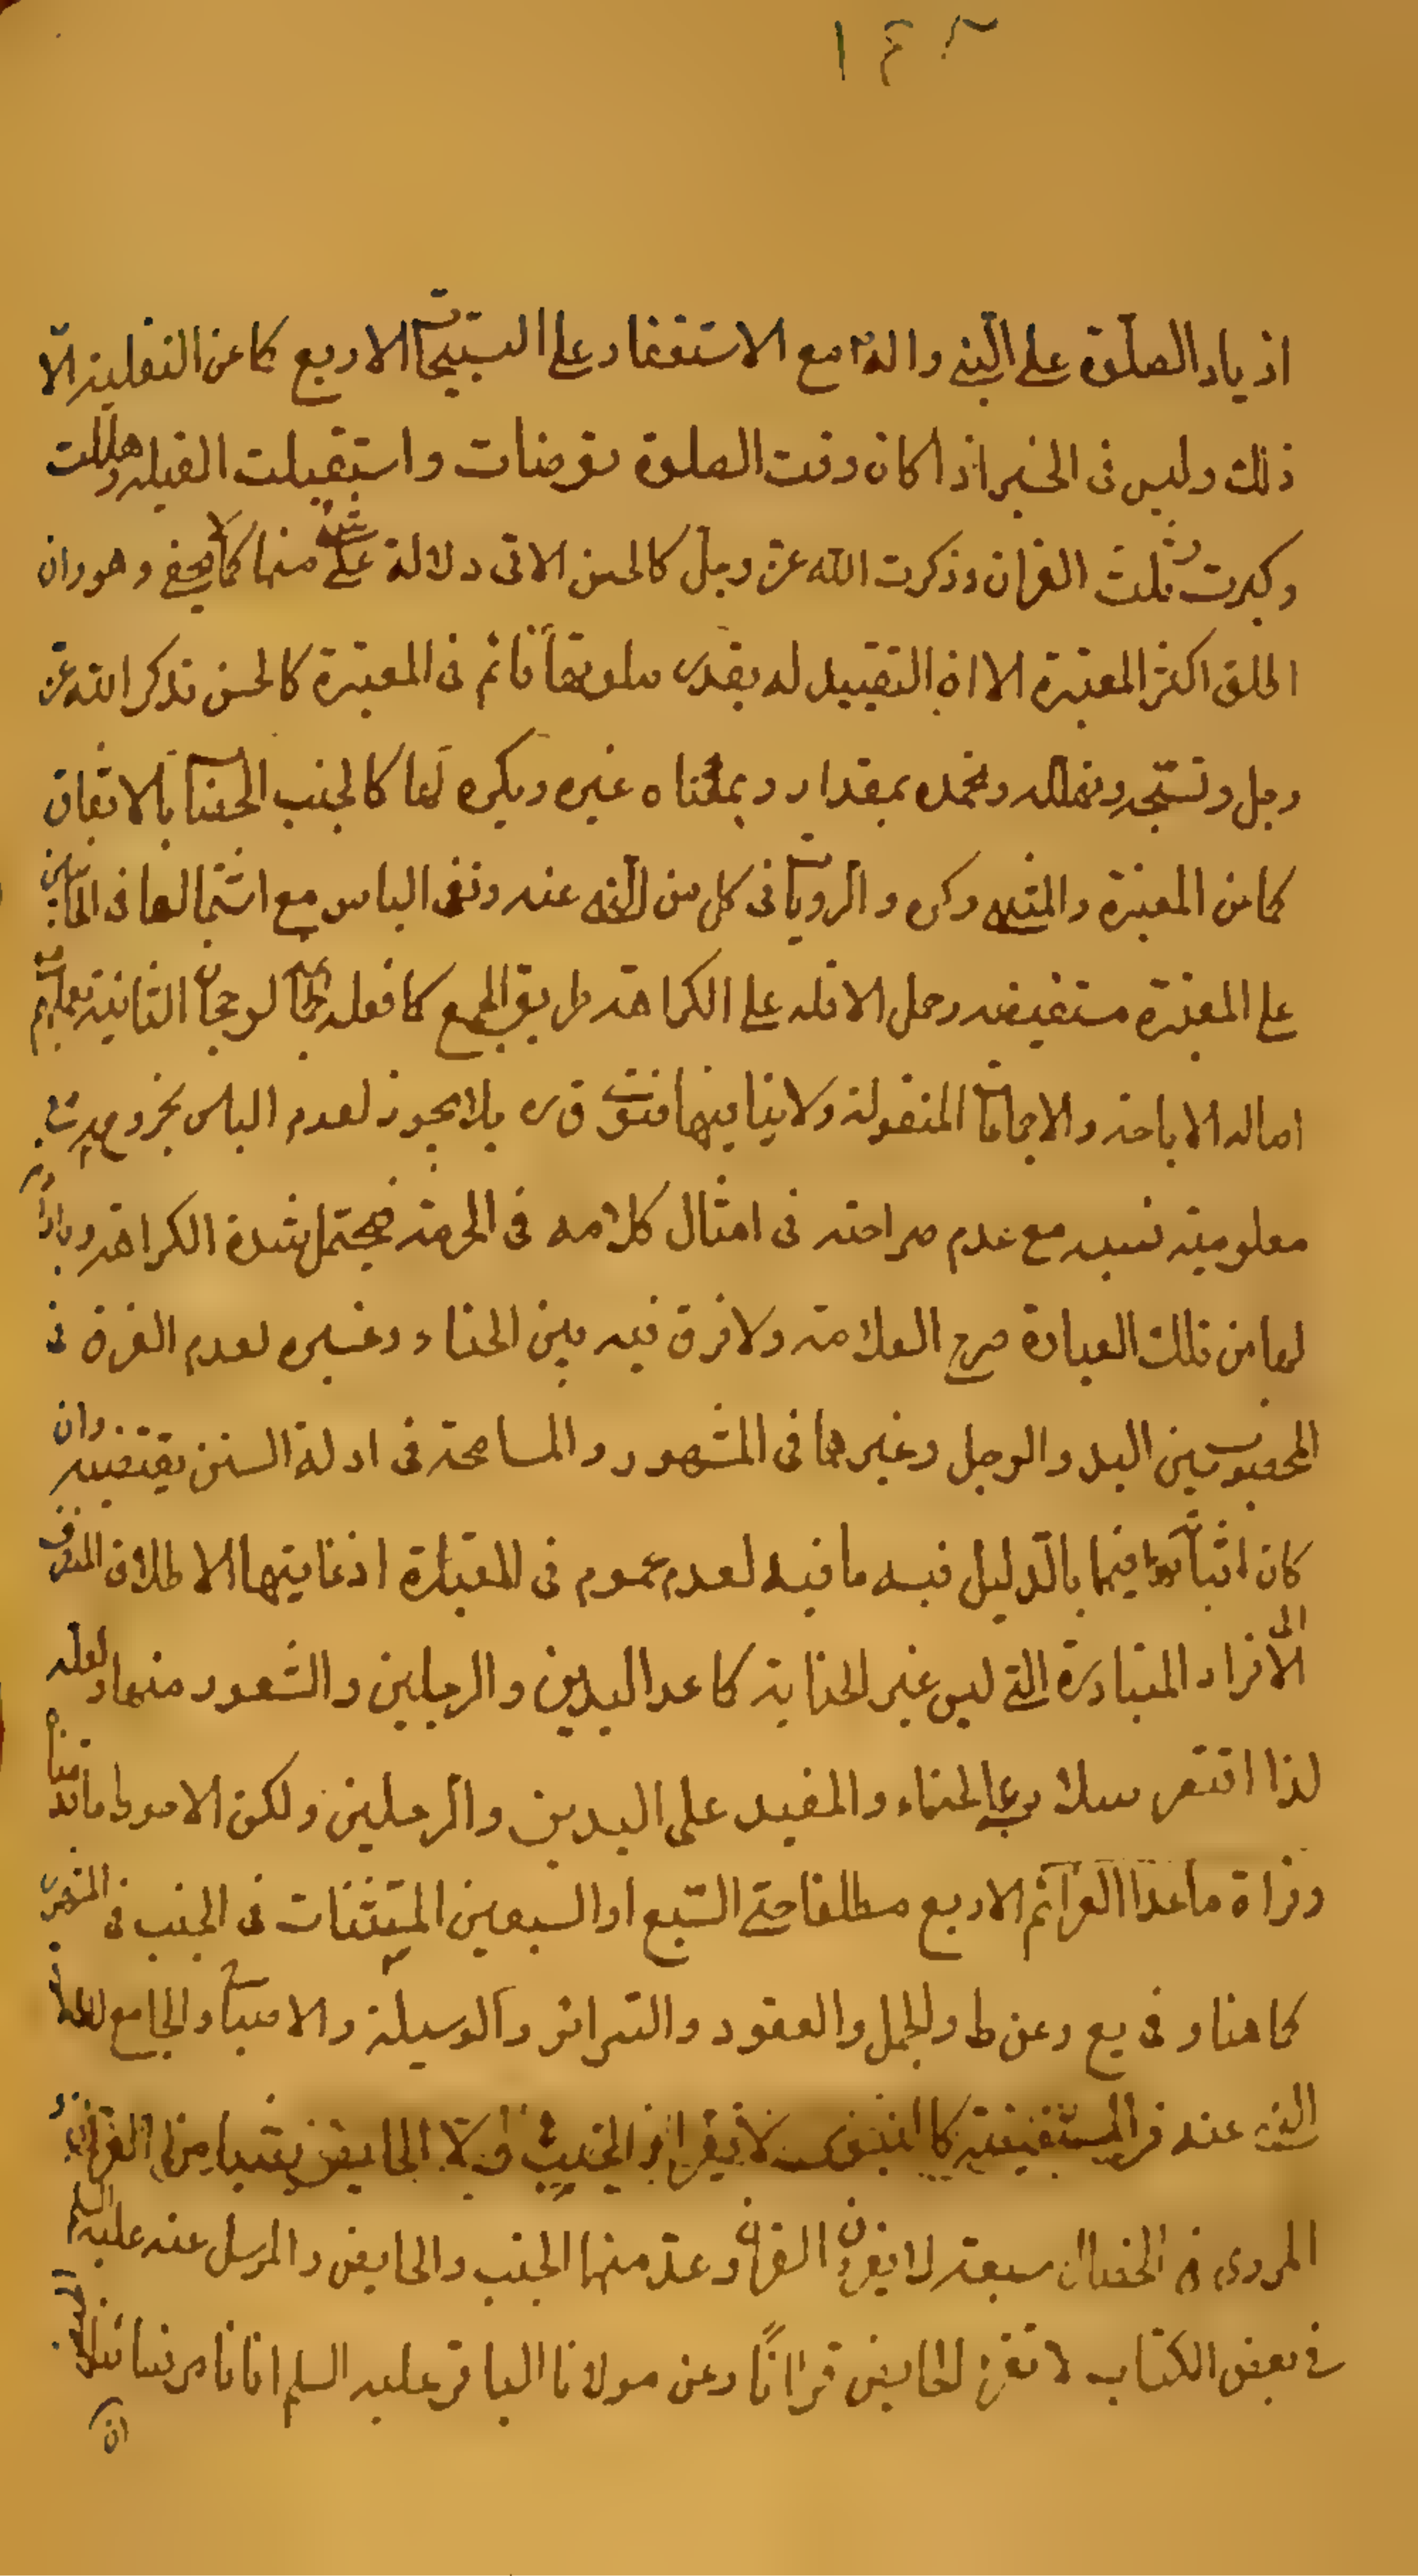 ازدياد الصلوة على النبي واله مع الاستغفار على التسبيحات الاربع كما عن النفلية الا
ذلك وليس في الخبر اذا كان وقت الصلوة توضات واستقبلت القبله وهللت
وكبرت وتلت القران وذكرت الله عز وجل كالحسن الاتي دلالة على شئ منها كما لا يخفى وهو وان
اطلق اكثر المعتبرة الا ان التقييد له بقدر صلوتها قائم في المعتبرة كالحسن تذكر الله عز
وجل وتسبحه وتهلله وتحمده بمقدار وبمعناه غيره ويكره لها كالجنب الخضاب بالاتفاق
كما عن المعتبرة والمنتهى وكره والروايات في كل من النهي عنه ونفي الباس مع اشتمالها في
على المعتبرة مستفيضه وحمل الاوله على الكراهة طريق الجمع كما فعله لرجحان الثانية
اصالة الاباحة والاجماعات المنقولة ولا ينافيها بلا يجوز لعدم الباس بخروج
معلومية نسبه مع عدم صراحته في امثال كلامه في الحرمة فيحتمل شدة الكراهة
لها من تلك العبارة صرح العلامة ولا فرق فيه بين الحناء وغيره لعدم الفرق في
المخضوب بين اليد والرجل وغيرهما في المشهور والمسامحة في ادلة السنن يقتضيه وان
كان اثباتهما فيهما بالدليل فيه ما فيه لعدم عموم في المعتبرة اذ غايتها الاطلاق المنصرف
الى الافراد المتبادرة التي ليس غير الحنا به كما عدا اليدين والرجلين والشعور منها ولعله
لذا اقتصر سلار على الحناء والمفيد على اليدين والرجلين ولكن الاحوط ما قدمناه
وقراءة ما عدا العزائم الاربع مطلقا حتى السبع او السبعين المستثنات في الجنب في
كما هنا وفي يع وعن ط والجمل والعقود والسرائر والوسيلة والاصباح والجامع
النهي عنه في المستفيضة كالنبوي لا يقرا الجنب ولا الحايض شيئا من القران
المروي في الخصال سبعة لا يقرؤن القران وعد منها الجنب والحايض والمرسل عنه عليه السلم
في بعض الكتاب لا تقرء الحايض قرانًا وعن مولانا الباقر عليه السلم انا نامر نسائنا
ان